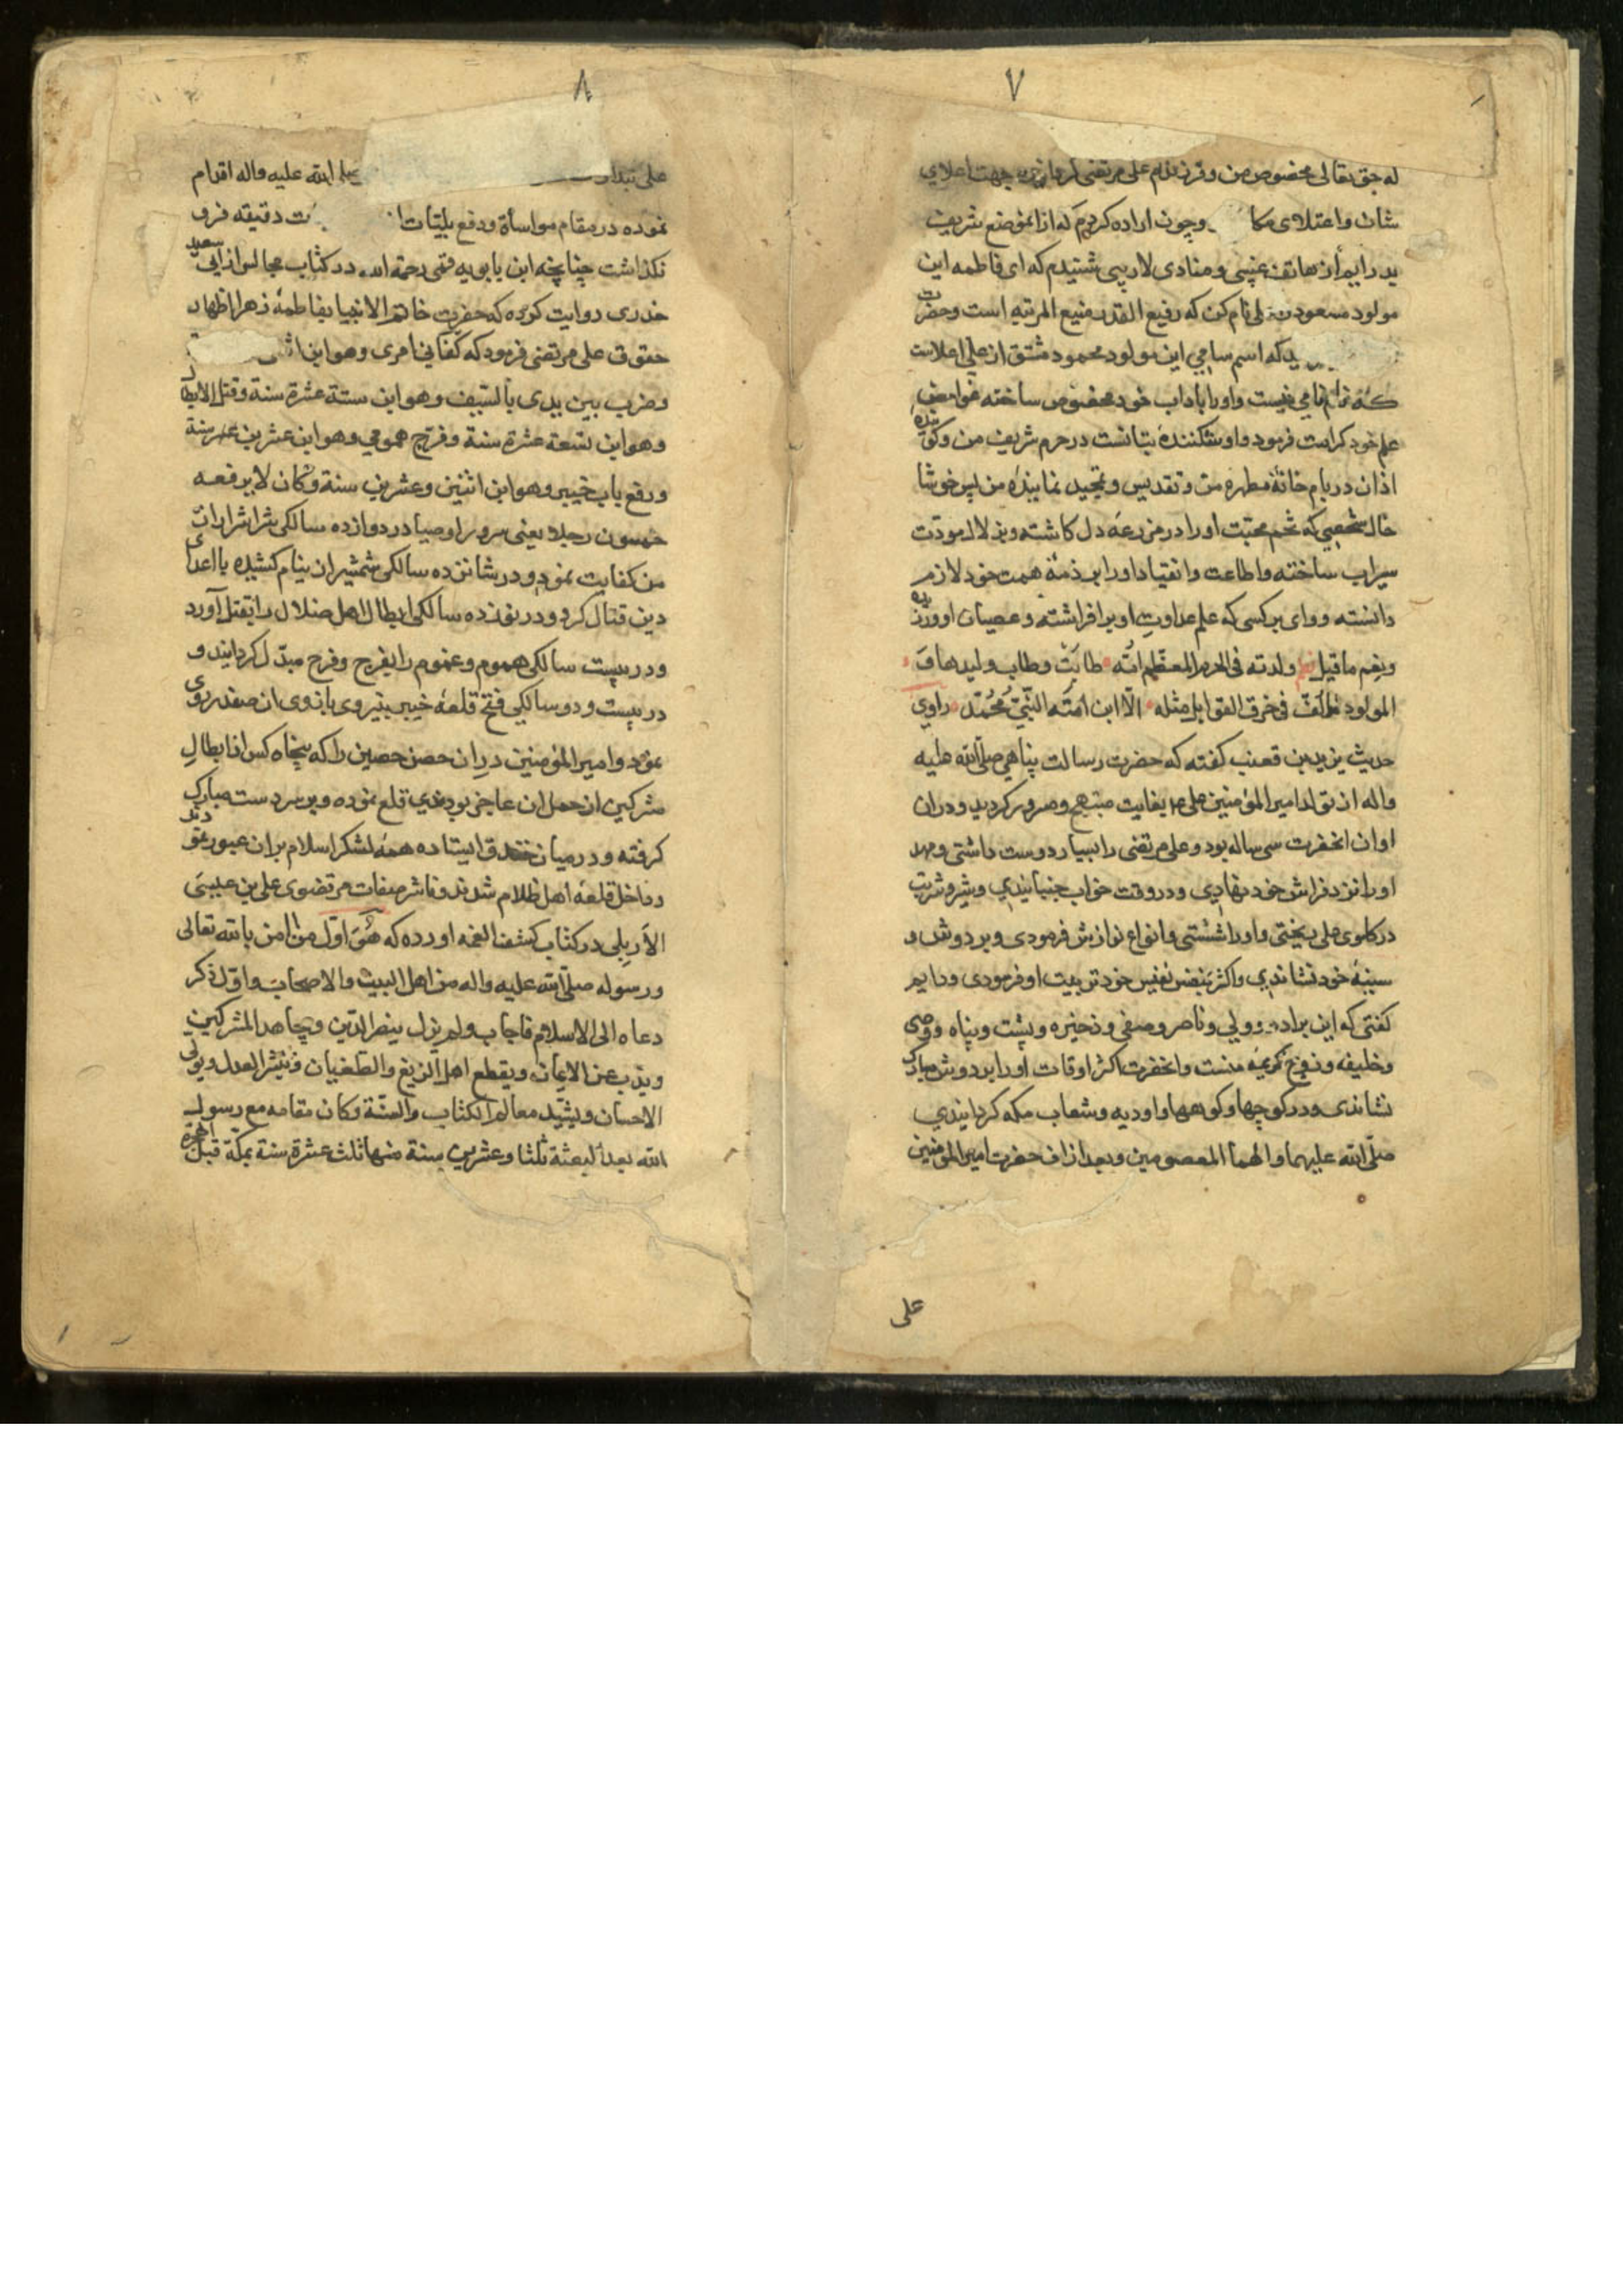 ۷
له حق تعالی مخصوص من و فرزندم علی مرتضی جهت اعلای
شان و اعتلای مکا وچون اراده کردم که از انموضع شریف
بدر ایم از هاتف غیبی و منادی لاریبی شنیدم که ای فاطمه این
مولود مسعود نام کن که رفیع القدر منیع المرتبه است وحضرت
که اسم سامی این مولود محمود مشتق از علی اعلاست
که نام نامی منست و اورا باداب خود مخصوص ساخته غوامض
علم خود کرامت فرمود و او شکنندهٔ بتانست در حرم شریف من و کوینده
اذان در بام خانهٔ مطهره من و تقدیس و تمجید نمایندهٔ من پس خوشا
حال شخصی که تخم محبت اورا در مزرعه دل کاشته و بزلال مودت
سیراب ساخته و اطاعت و انقیاد اورا بر ذمهٔ همت خود لازم
دانسته و وای بر کسی که علم عداوت او بر افراشته و عصیان او ورزیده
ونعم ما قیل ولدته فی الحرم المعظم امّه طابَتْ وطاب ولیدها وَ
المولود مالُفّ فی خرق القوابل مثله الّا ابن امّته النّبیّ مُحُمّد راوی
حدیث یزید بن قعنب کفته که حضرت رسالت پناهی صلّی الله علیه
واله از تولد امیر المؤمنین علی ع بغایت مبتهج و مسرور کردید و دران
اوان انحضرت سی ساله بود و علی مرتضی را بسیار دوست داشتی و مهد
اورا نزد فراش خود نهادی و در وقت خواب جنبانیدی و شیر و شربت
در کلوی علی ریختی و اورا شستی و انواع نوازش فرمودی و بر دوش و
سینهٔ خود نشاندی و اکثر بنفس نفیس خود تربیت او فرمودی و دایم
کفتی که این برادر و ولی و ناصر و صفی و ذخیره و پشت و پناه و وصی
و خلیفه و زوج کریمهٔ منست و انحضرت اکثر اوقات اورا بر دوش مبارک
نشاندی و در کوچها و کوهها و اودیه و شعاب مکه کردانیدی
صلّی الله علیهما و الهما المعصومین و بعد از ان حضرت امیر المؤمنین
علی
۸
الله علیه واله اقدام
نموده در مقام مواسأة و دفع بلیّات دقیقه فرو
نکذاشت چنانچه ابن بابویه قمی رحمة الله در کتاب مجالس از ابی سعید
خدری روایت کرده که حضرت خاتم الانبیا بفاطمهٔ زهرا اظهار
حقوق علی مرتضی فرمود که کفانی امری وهو ابن
وضرب بین یدی بالسّیف وهو ابن ستّة عشرة سنة وقتل الابطال
وهو ابن تسعة عشرة سنة وفرّج همومی وهو ابن عشرین سنة
ورفع باب خیبر وهو ابن اثنین وعشرین سنة وکان لا یرفعه
خمسون رجلا یعنی سرور اوصیا در دوازده سالکی شر اشرار ازت
من کفایت نمود و در شانزده سالکی شمشیر از نیام کشیده با اعدای
دین قتال کرد و در نوزده سالکی ابطال اهل ضلال را بقتل آورد
و در بیست سالکی هموم و غموم را بفرج و فرح مبدّل کردانید و
در بیست و دو سالکی فتح قلعهٔ خیبر بنیروی بازوی ان صفدر روی
نمود و امیر المؤمنین در ان حصن حصین را که پنجاه کس از ابطال
مشرکین از حمل ان عاجز بودندی قلع نموده و بر سر دست مبارک
کرفته و در میان خندق ایستاده همهٔ لشکر اسلام بر ان عبور نمودند
و داخل قلعهٔ اهل ظلام شدند و ناشر صفات مرتضوی علی بن عیسی
الاَربلی در کتاب کشف الغمه اورده که هُوَ اوّل من امن بالله تعالی
ورسوله صلّی الله علیه واله من اهل البیت والاصحاب و اوّل ذکر
دعاه الی الاسلام فاجاب ولم یزل ینصر الدّین ویجاهد المشرکین
ویذب عن الایمان ویقطع اهل الزیغ والطغیان وینشر العدل ویولی
الاحسان ویشیّد معالم الکتاب والسنّة وکان مقامه مع رسول
الله بعد البعثة ثلثا وعشرین سنة منها ثلث عشرة سنة بمکّة قبل الهجرة